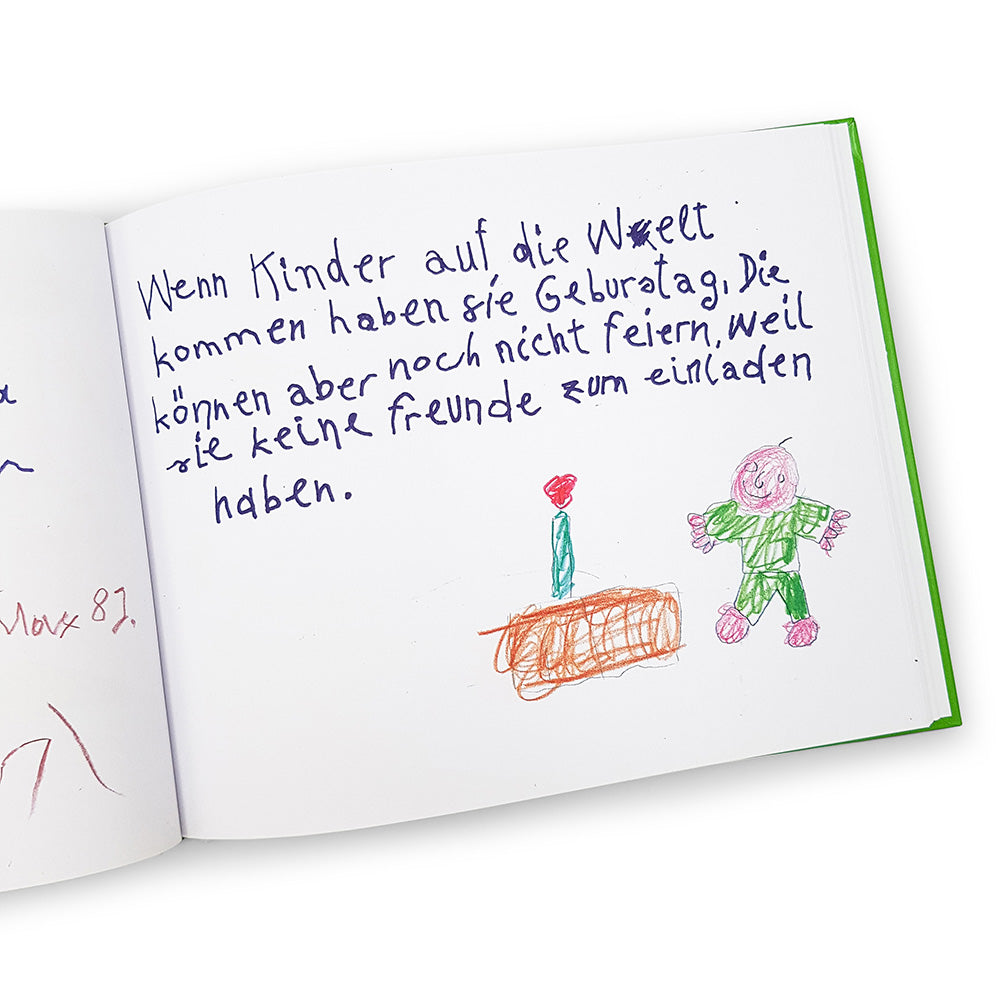 Wenn Kinder auf die Welt
kommen haben sie Geburstag, Die
können aber noch nicht feiern, weil
sie keine freunde zum einladen
haben.
8J.